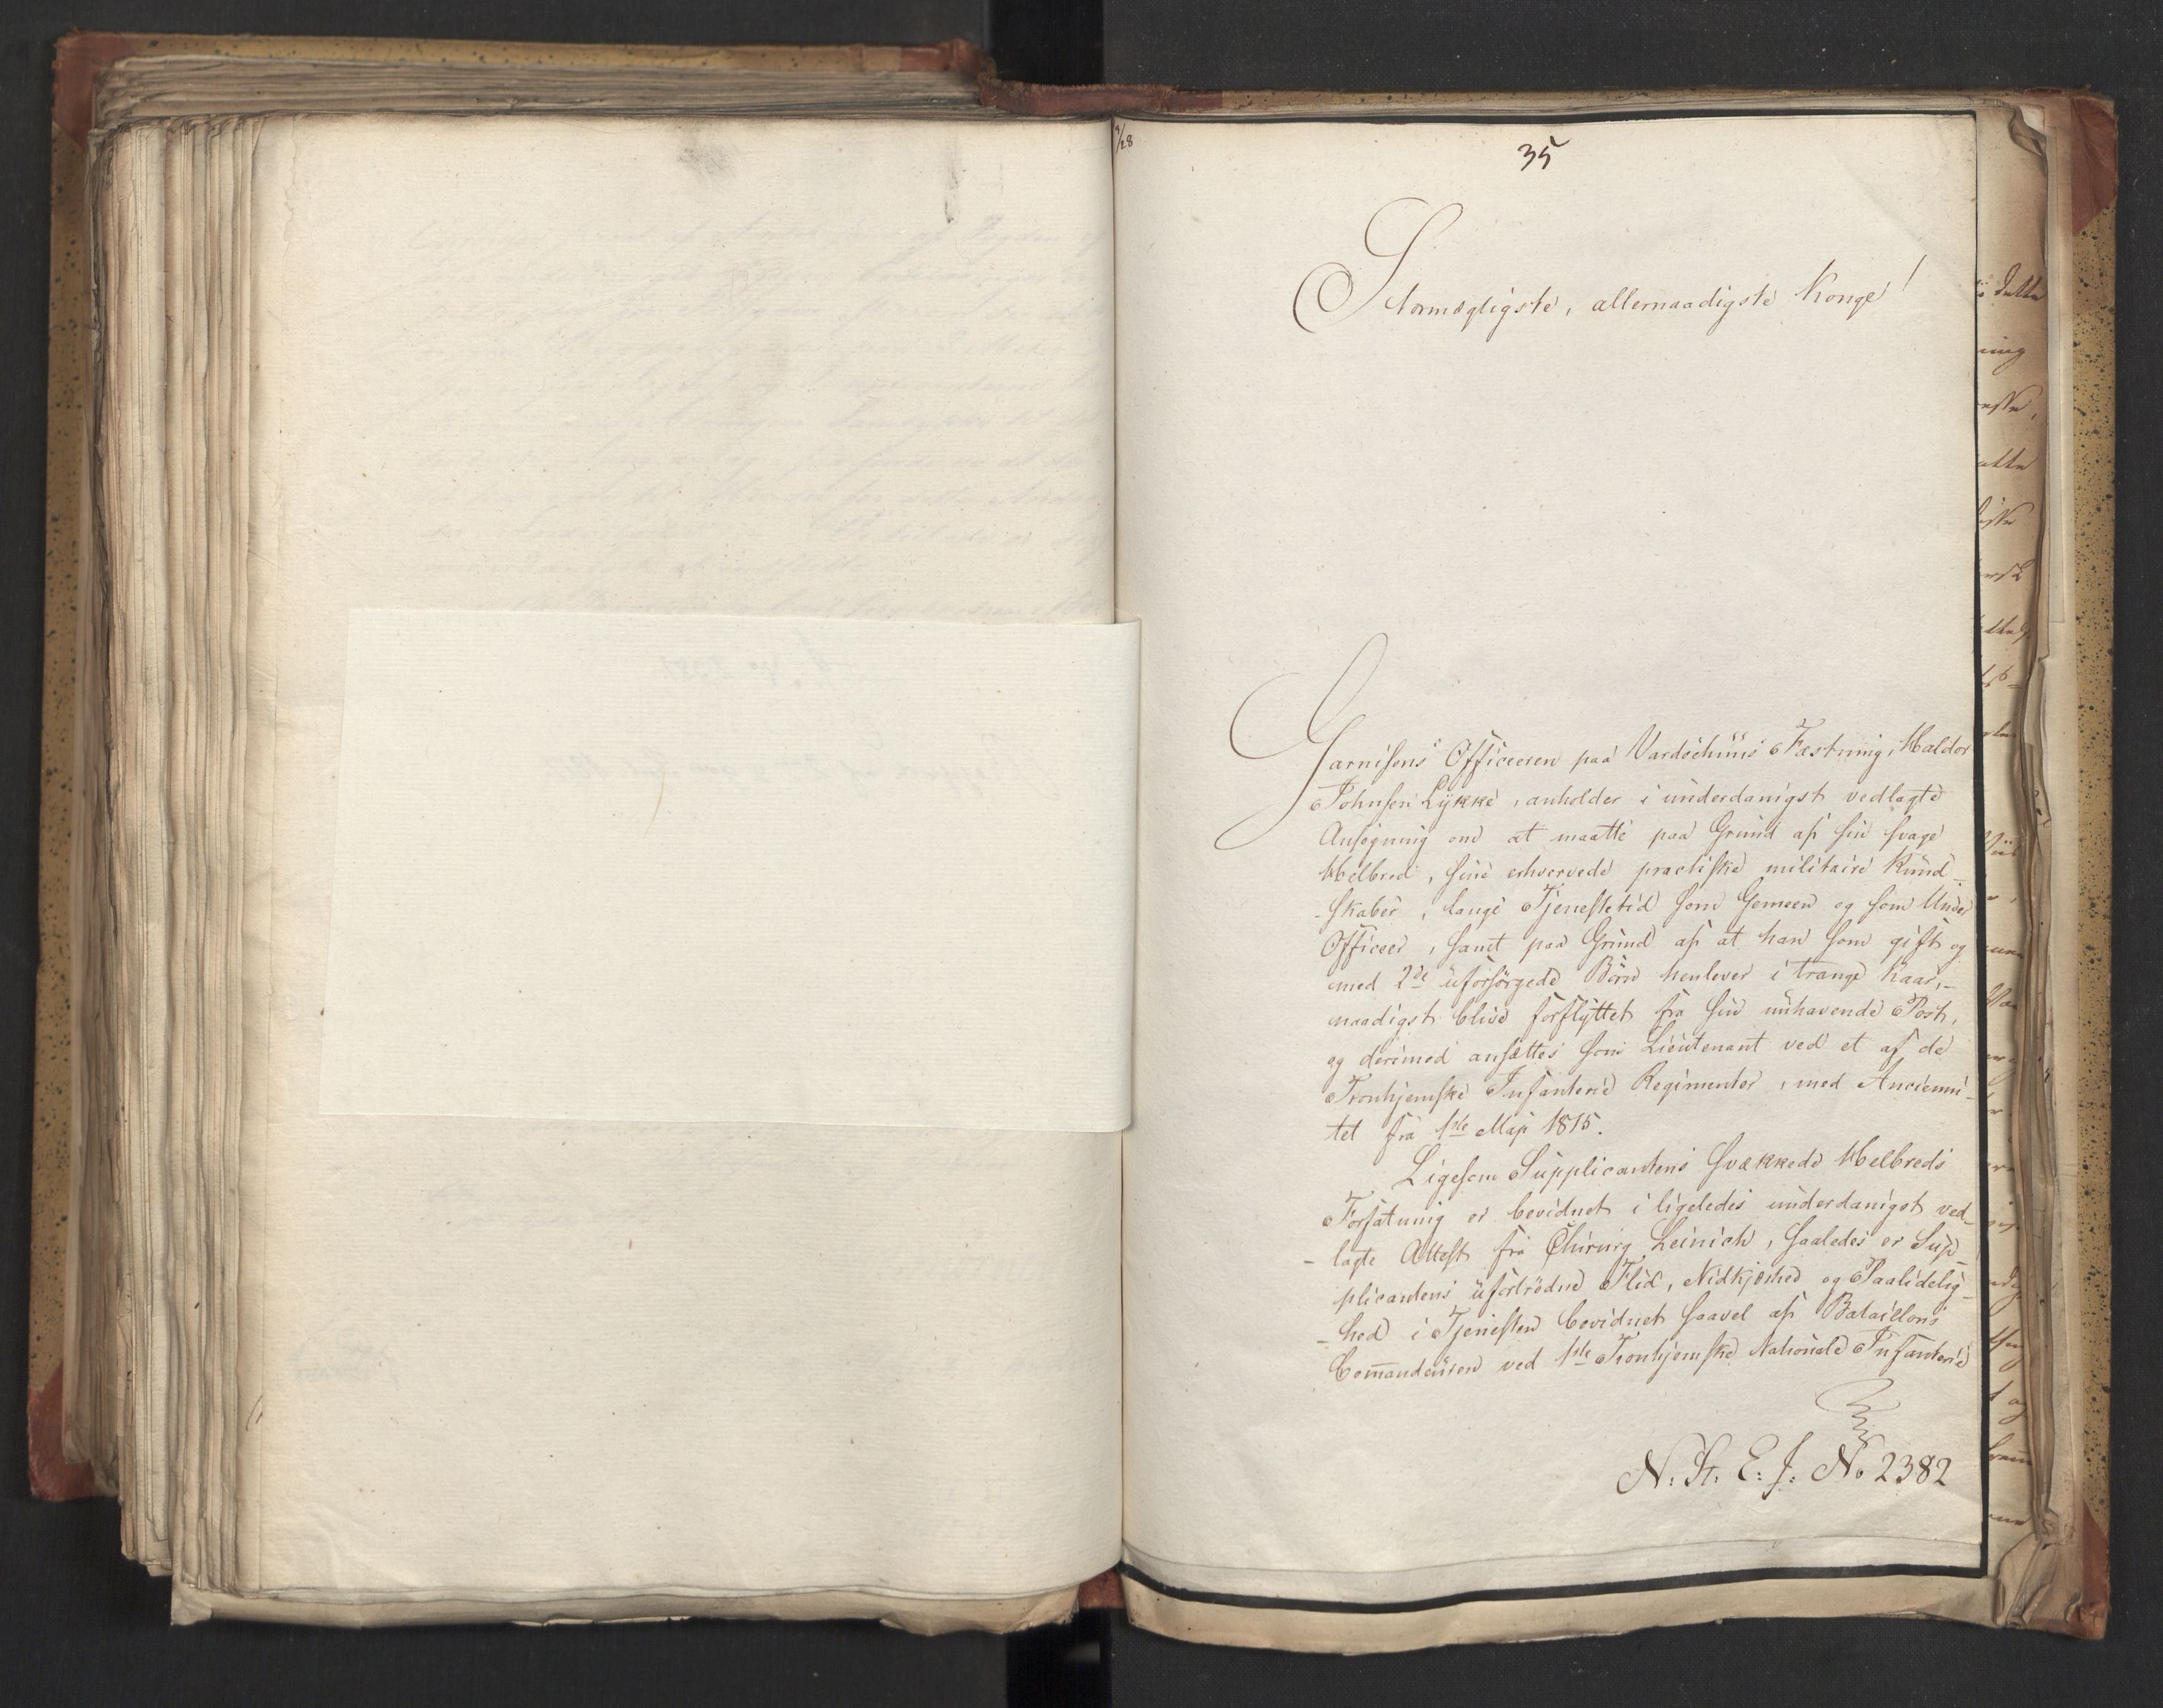 9/28
35
Stormægtigste, allernaadigste Konge!
Garnisons Officeren paa Vardøehuus Fæstning, Haldor
Johnsen Lykke, anholder i underdanigst vedlagte
Ansøgning om at maatte paa Grund af sin svage
Helbred, sine erhvervede practiske militaire Kund-
-skaber, lange Tjenestetid som Gemeen og som Under
Officeer, samt paa Grund af at han som gift og
med 2de uforsørgede Børn henlever i trange Kaar,-
naadigst blive forflyttet fra sin nuhavende Post,
og derimod ansættes som Lieutenant ved et af de
Tronhjemske Infanterie Regimenter, med Ancienni-
tet fra 1ste Maji 1815.
Ligesom Supplicantens svækkede Helbreds
Forfatning er bevidnet i ligeledes underdanigst ved-
-lagte Attest fra Chirurg Leinich, saaledes er Sup-
plicantens ufortrødne Flid, Nidkjærhed og Paalidelig-
-hed i Tjenesten bevidnet saavel af Bataillons
Com̄andeuren ved 1ste Tronhjemske Nationale Infanterie
N: St. E: J: No 2382